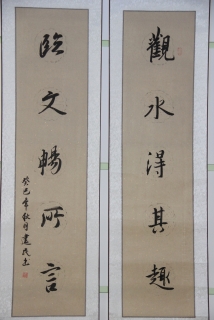 觀水得其趣
臨文暢所言
癸巳年秋月